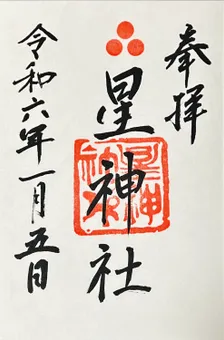 奉拝
星神社
令和六年一月五日